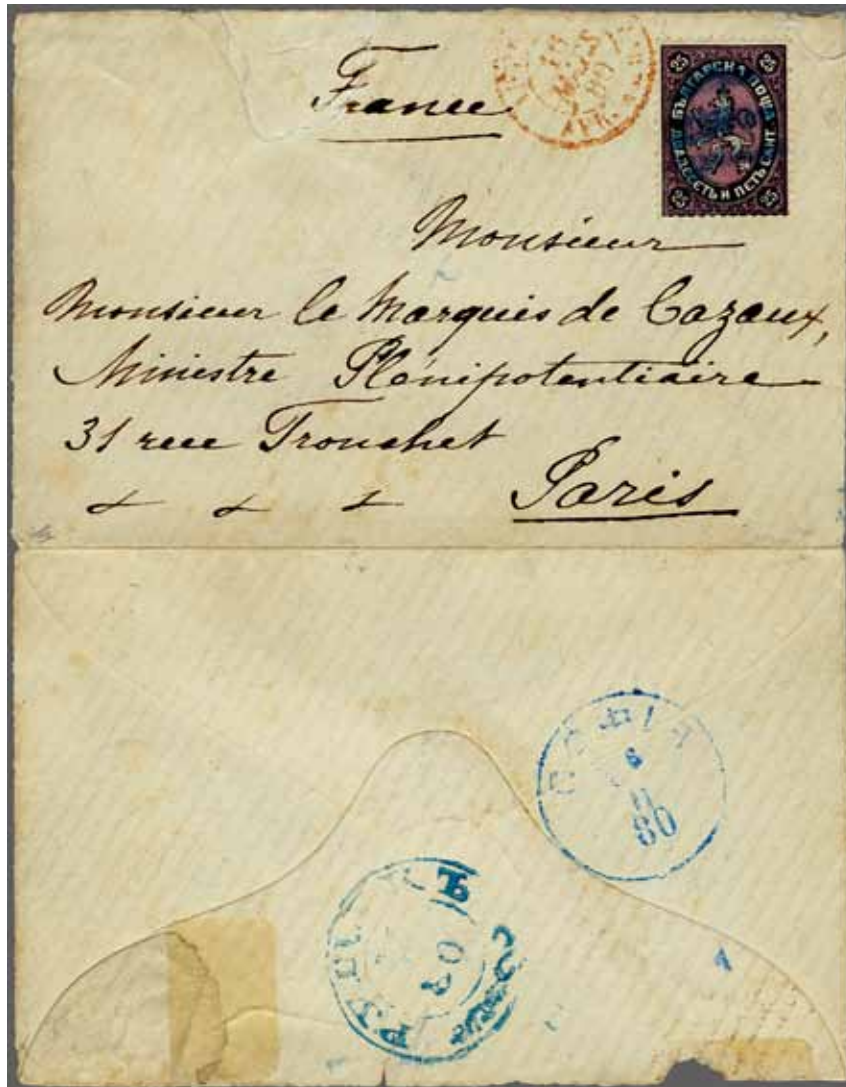 France
25 25
БЪЛГАРСКА ПОЩА
ДВАДЕСЕТЬ И ПЕТЬ САНТ.
25 25
18
MARS
80
Monsieur
Monsieur le Marquis de Cazaux,
Ministre Plénipotentiaire
31 rue Tronchet
Paris
СОФІЯ
6
II
80
80